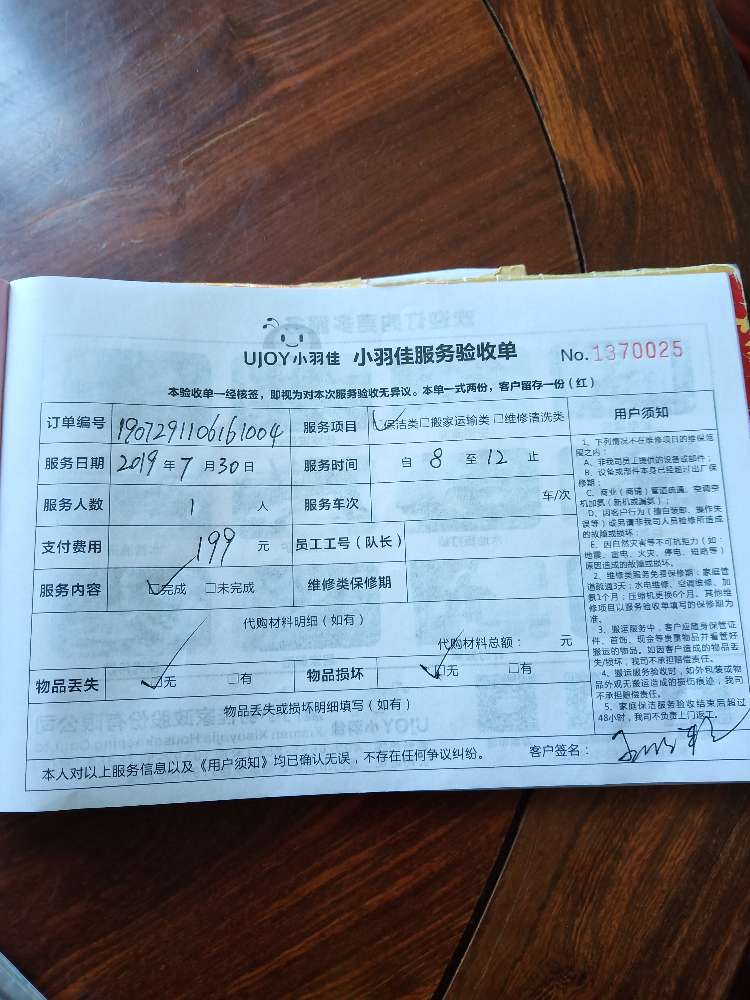 UJOY小羽佳 小羽佳服务验收单 No.1370025
本验收单一经核签，即视为对本次服务验收无异议。本单一式两份，客户留存一份（红）
订单编号 1907291106161004 服务项目 保洁类 □搬家运输类 □维修清洗类
服务日期 2019年7月30日 服务时间 自 8 至 12 止
服务人数 1 人 服务车次 车/次
支付费用 199 元 员工工号（队长）
服务内容 □完成 □未完成 维修类保修期
代购材料明细（如有）
代购材料总额： 元
物品丢失 □无 □有 物品损坏 □无 □有
物品丢失或损坏明细填写（如有）
本人对以上服务信息以及《用户须知》均已确认无误，不存在任何争议纠纷。 客户签名：
用户须知
1、下列情况不在维修项目的维保范
围之内：
A、非我司员工提供的设备或部件；
B、设备或部件本身已经超过出厂保
修期；
C、商业（商铺）管道疏通、空调空
机加氨（新机或漏氨）；
D、因客户行为（擅自装卸、操作失
误等）或另请非我司人员检修所造成
的故障或损坏；
E、因自然灾害等不可抗能力（如：
地震、雷电、火灾、停电、短路等）
原因造成的故障或损坏。
2、维修类服务免费保修期：家庭管
道疏通3天；水电维修、空调维修、加
氨1个月；压缩机更换6个月。其他维
修项目以服务验收单填写的保修期为
准。
3、搬运服务中，客户应随身保管证
件、首饰、现金等贵重物品并看管好
搬运的物品。如因客户造成的物品丢
失/损坏，我司不承担赔偿责任。
4、搬运服务验收时，如外包装或物
品外观无搬运造成的损伤痕迹，我司
不承担赔偿责任。
5、家庭保洁服务验收结束后超过
48小时，我司不负责上门返工。